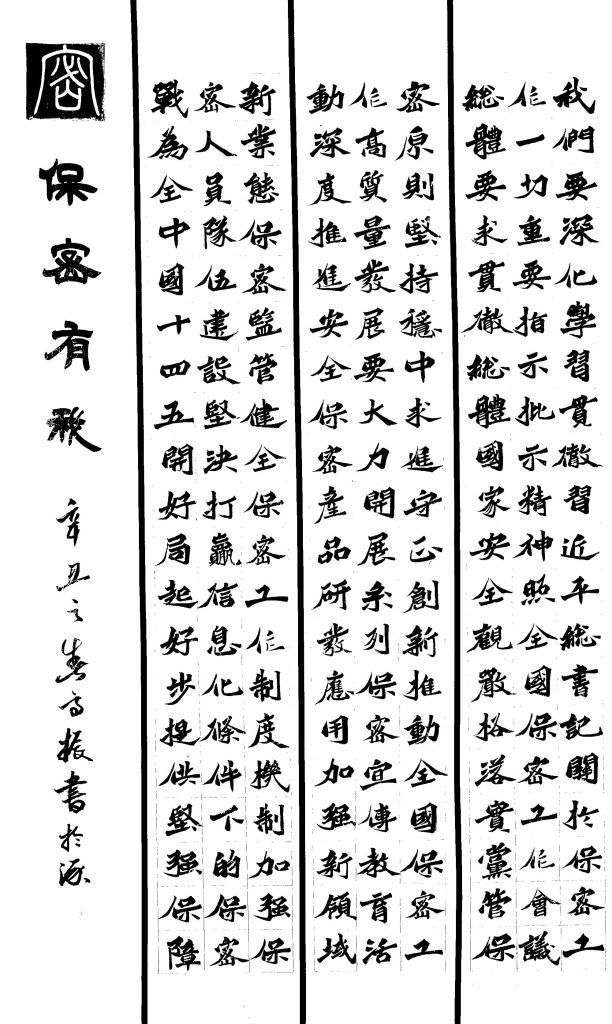 我們要深化學習貫徹習近平總書記關於保密工
作一切重要指示批示精神照全國保密工作會議
總體要求貫徹總體國家安全觀嚴格落實黨管保
密原則堅持穩中求進守正創新推動全國保密工
作高質量發展要大力開展系列保密宣傳教育活
動深度推進安全保密產品研發應用加强新領域
新業態保密監管健全保密工作制度機制加强保
密人員隊伍建設堅決打贏信息化條件下的保密
戰為全中國十四五開好局起好步提供堅强保障
密
保密有我
辛丑之春高振書於涿